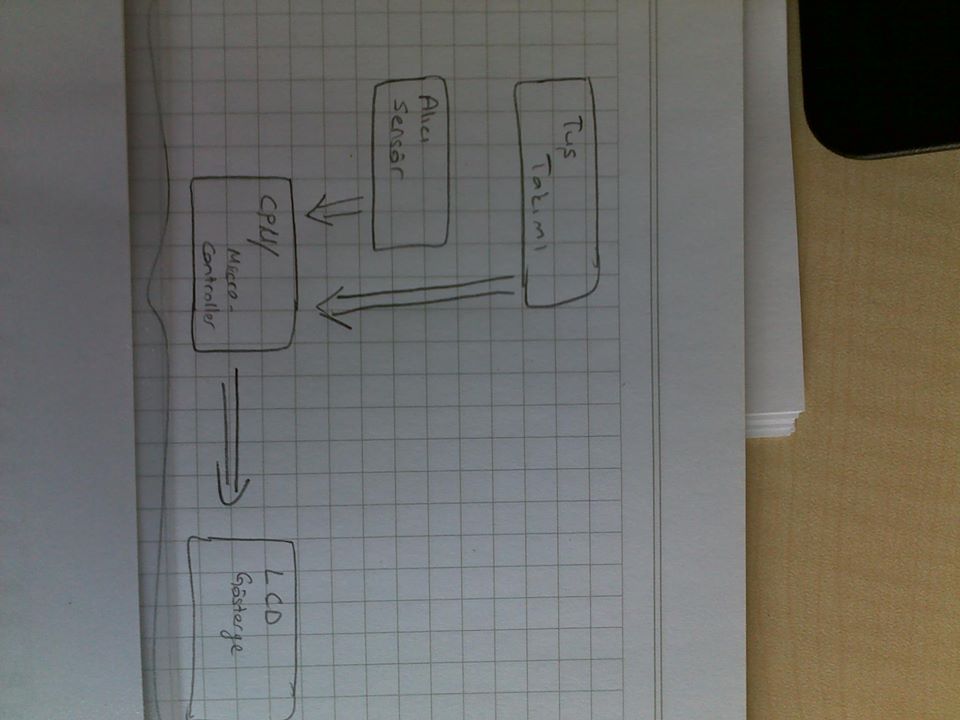 Tuş
Takımı
Alıcı
Sensör
CPU/
Micro-
Controller
LCD
Gösterge